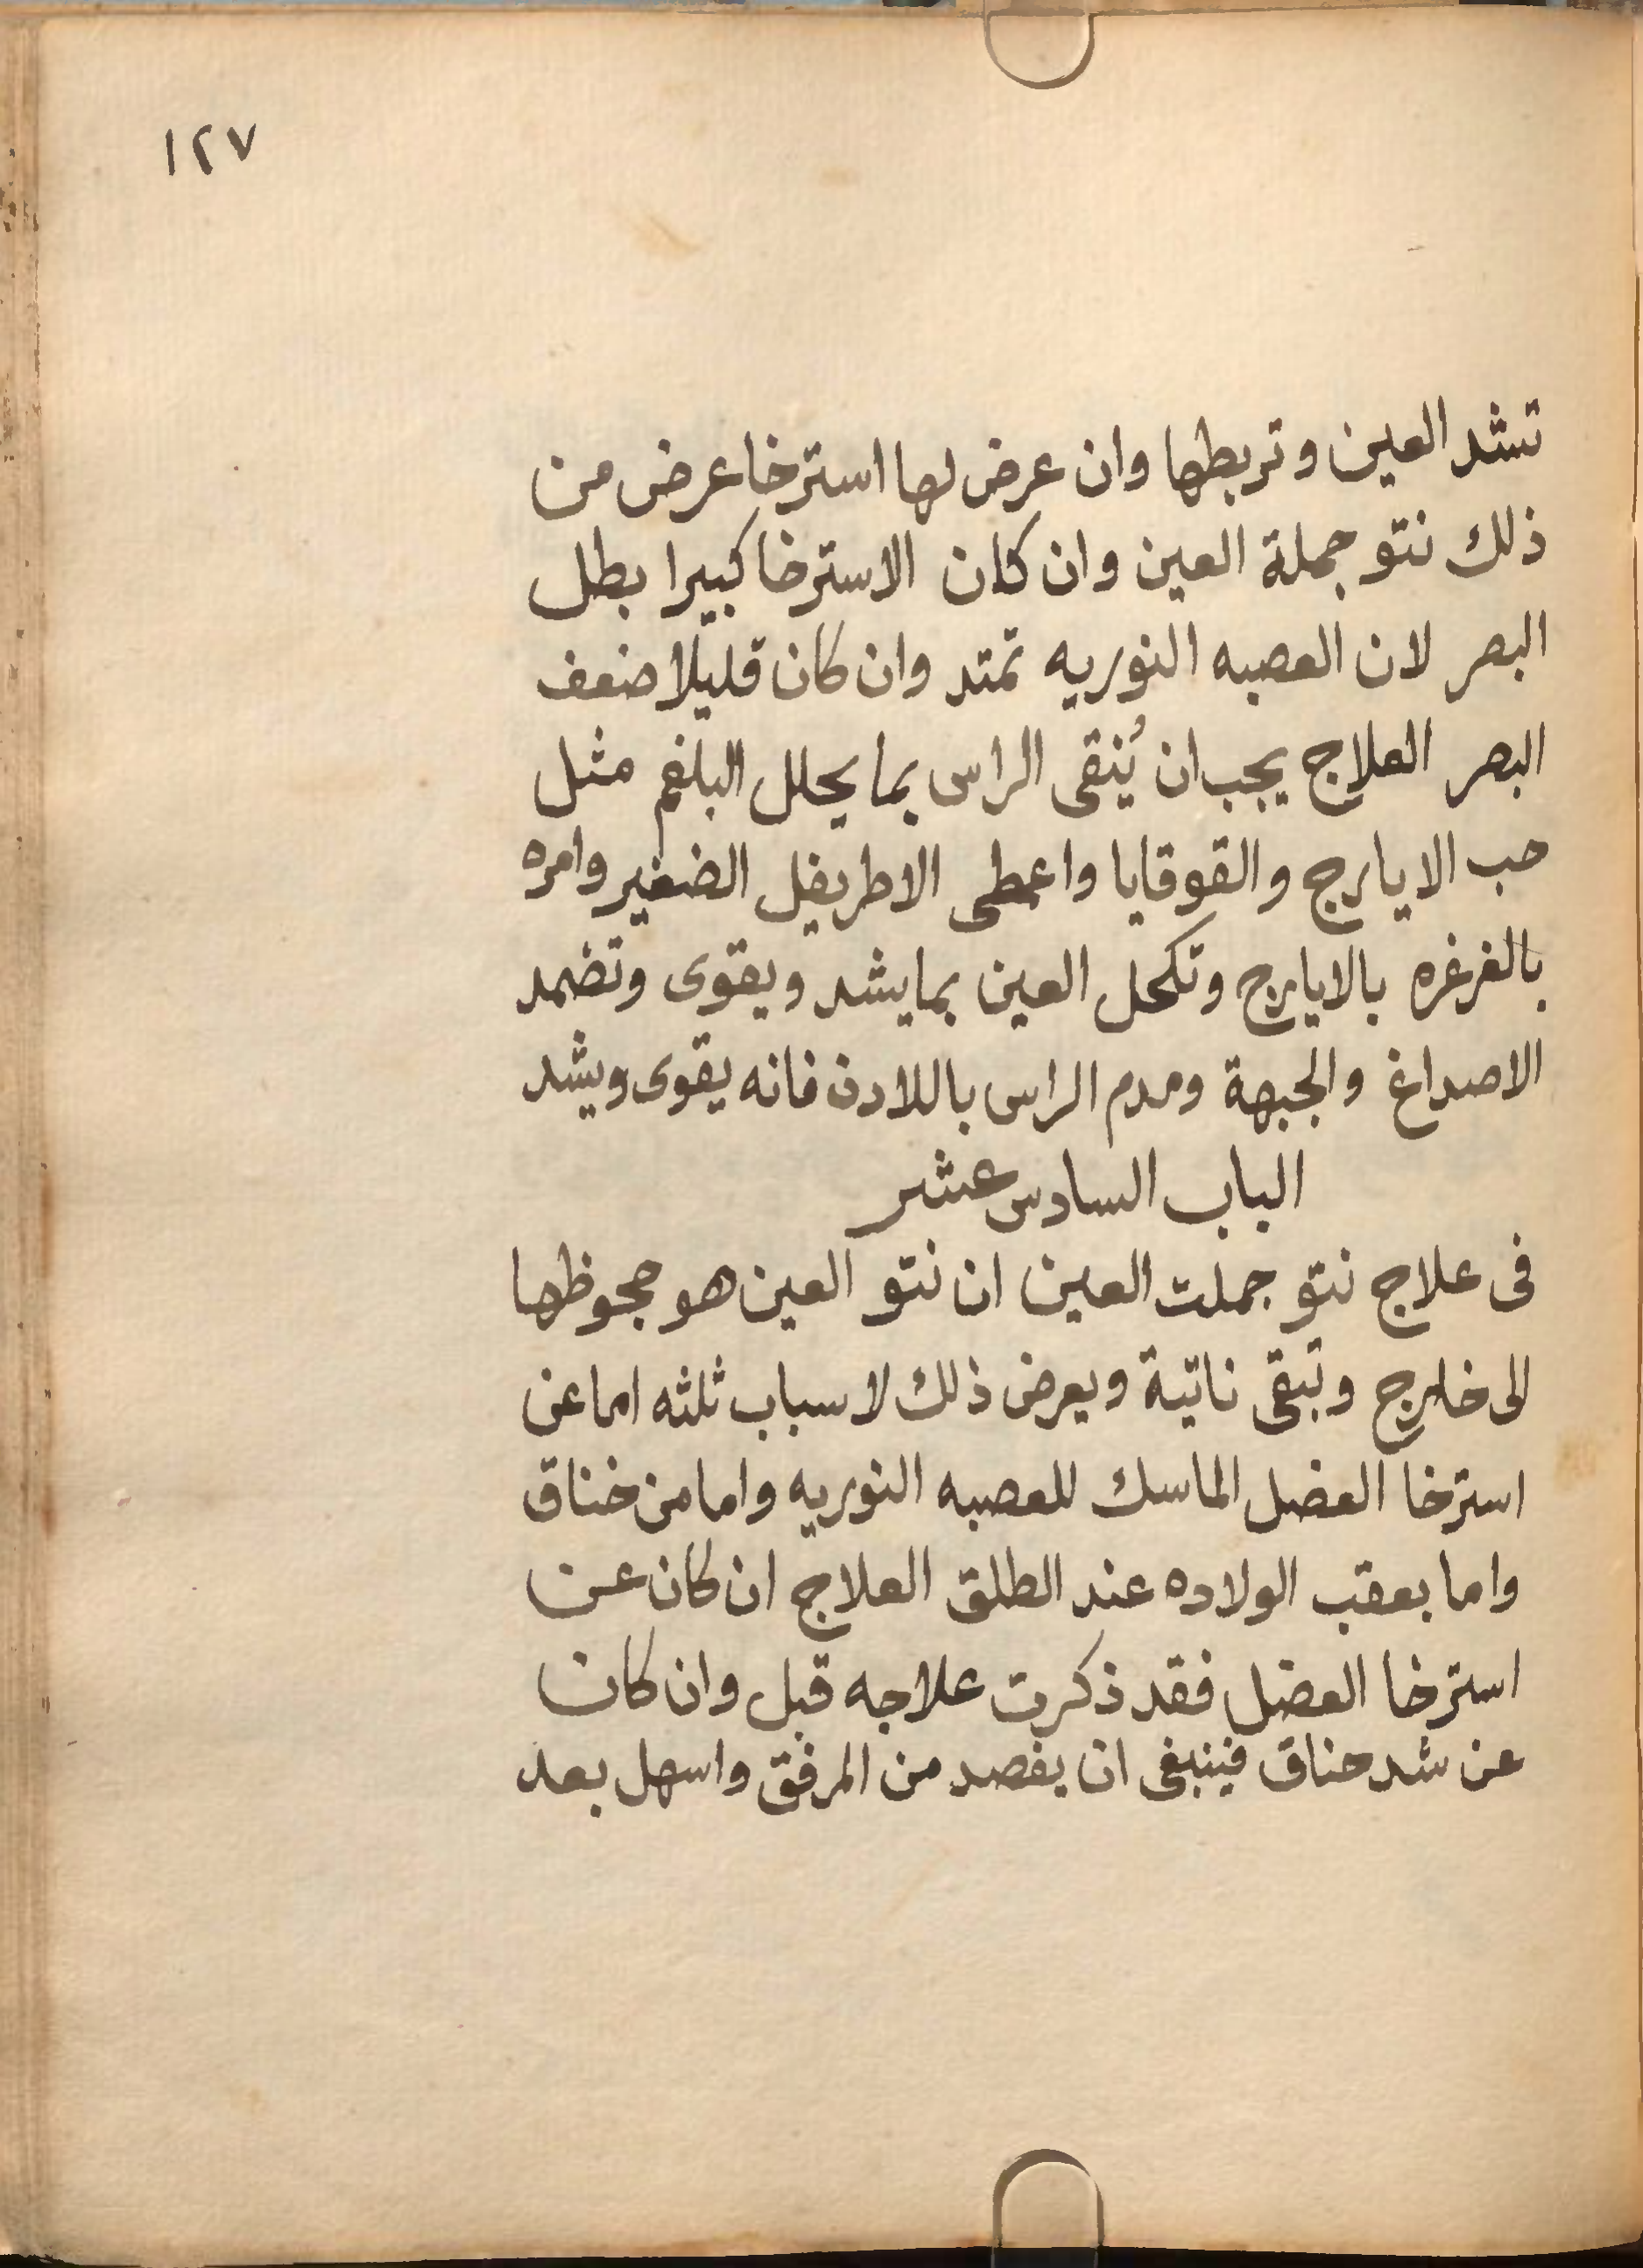 ١٢٧
تشد العين وتربطها وان عرض لها استرخا عرض من
ذلك نتو جملة العين وان كان الاسترخا كبيرا بطل
البصر لان العصبه النوريه تمتد وان كان قليلا ضعف
البصر العلاج يجب ان يُنقى الراس بما يحلل البلغم مثل
حب الايارج والقوقايا واعطى الاطريفل الضغير وامره
بالغرغره بالايارج وتكحل العين بما يشد ويقوى وتضمد
الاصداغ والجبهة ومدم الراس باللادن فانه يقوى ويشد
الباب السادس عشر
فى علاج نتو جملت العين ان نتو العين هو جحوظها
الى خارج وتبقى ناتية ويعرض ذلك لاسباب ثلثه اما عن
استرخا العضل الماسك للعصبه النوريه واما من خناق
واما بعقب الولاده عند الطلق العلاج ان كان عن
استرخا العضل فقد ذكرت علاجه قبل وان كان
عن شد حناق فينبغى ان يفصد من المرفق واسهل بعد